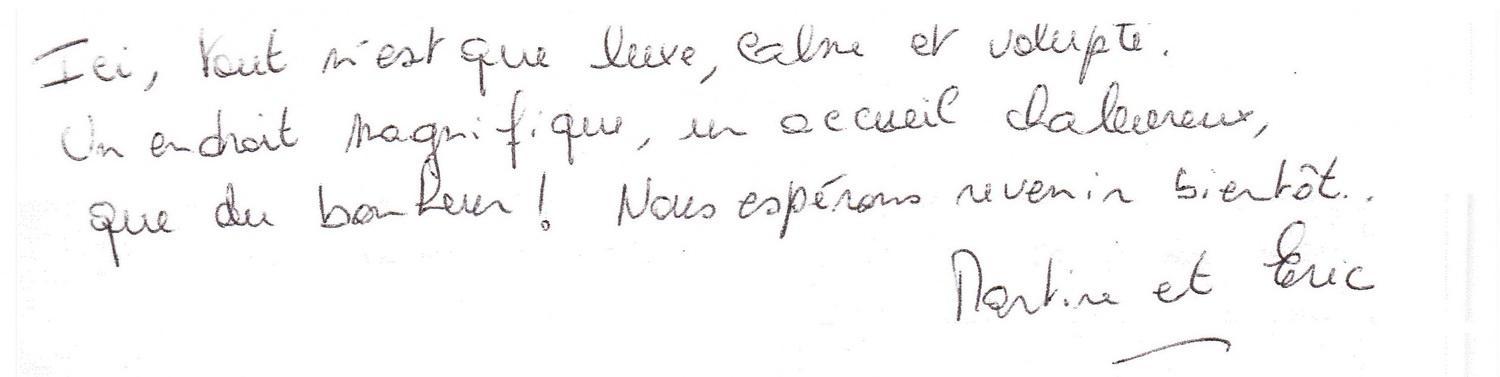 Ici, tout n'est que luxe, calme et volupté.
Un endroit magnifique, un accueil chaleureux,
que du bonheur! Nous espérons revenir bientôt..
Martine et Eric